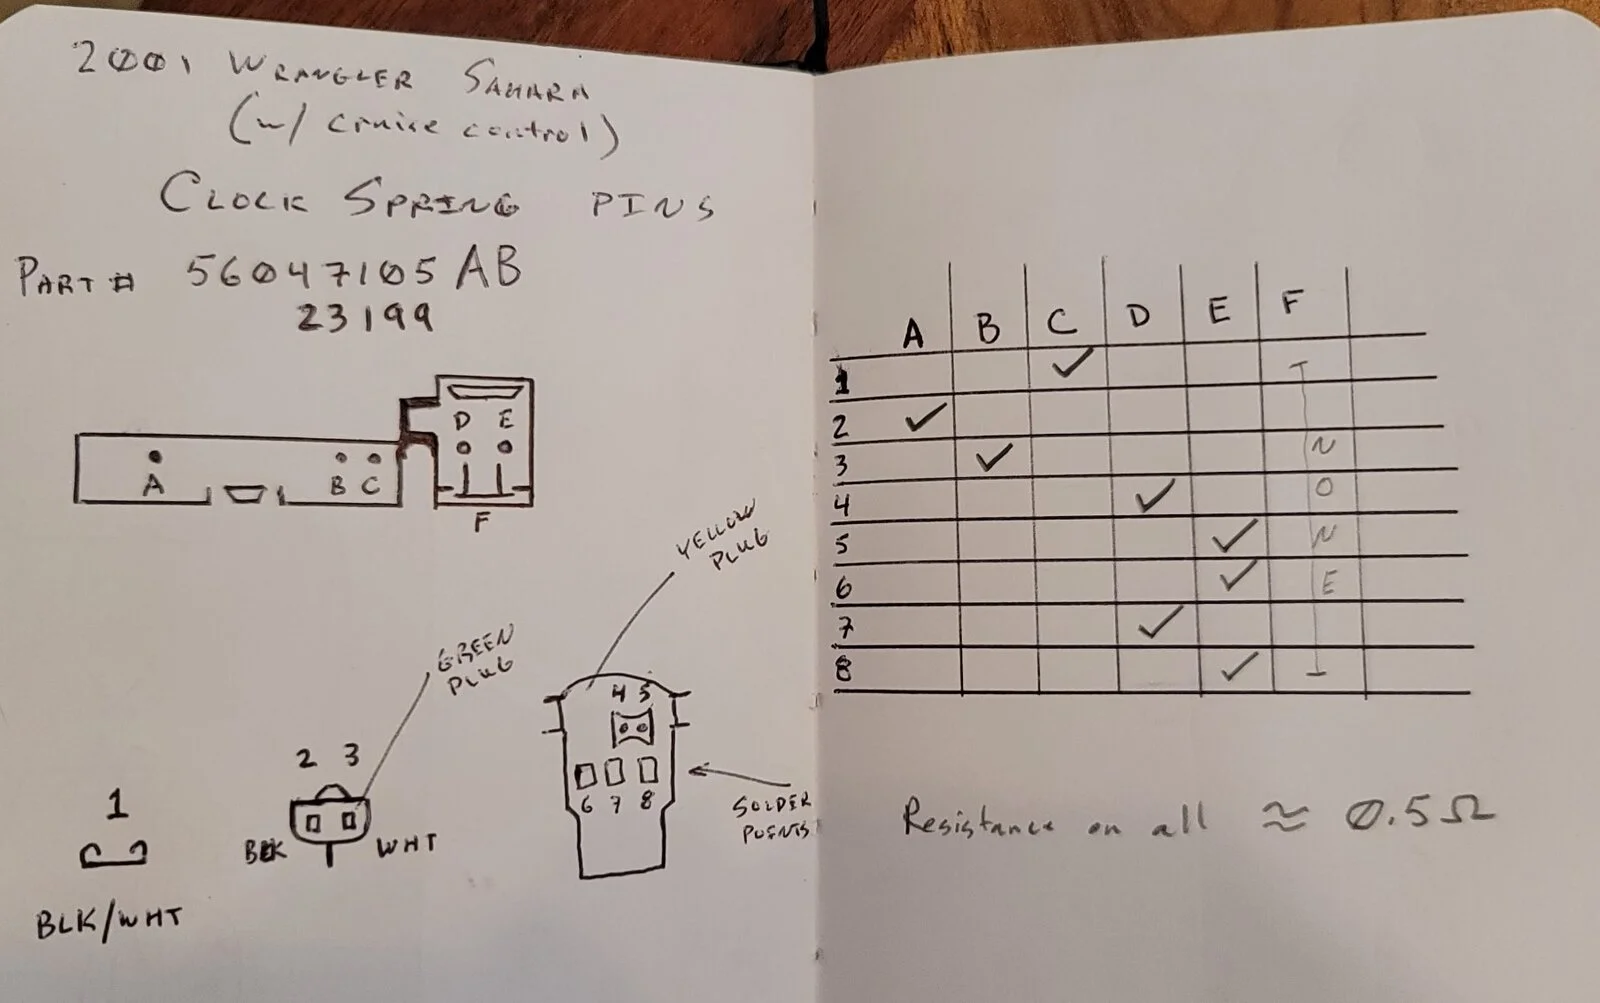 2001 WRANGLER SAHARA
(w/ cruise control)
CLOCK SPRING PINS
PART# 56047105AB
23199
D E
A B C
F
YELLOW
PLUG
GREEN
PLUG
4 5
2 3
6 7 8
SOLDER
POINTS
1
BLK WHT
BLK/WHT
A B C D E F
1 ✓
2 ✓
3 ✓ N
4 ✓ O
5 ✓ N
6 ✓ E
7 ✓
8 ✓
Resistance on all ≈ 0.5Ω